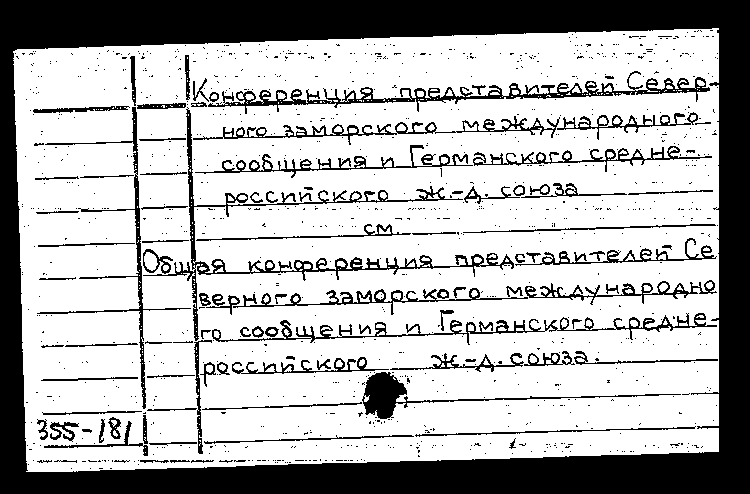 Конференция представителей Север-
ного заморского международного
сообщения и Германского средне-
российского ж.-д. союза
см.
Общая конференция представителей Се
верного заморского международно
го сообщения и Германского средне-
российского ж.-д. союза.
355-181